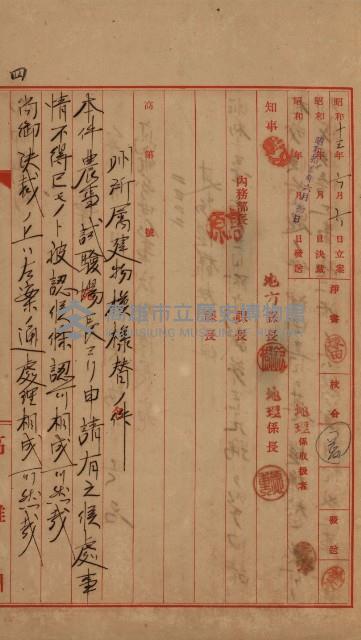 昭和十三年六月六日立案
昭和 年 月 日決裁
昭和 年 月 日發送
淨書
校合
發送
地理係取扱者
知事
內務部長
地方課長
課長
課長
地理係長
高 第 號
州所屬建物模樣替ノ件
本件農事試驗場長ヨリ申請有之候處事
情不得已モノト被認候條認可相成可然哉
尚御決裁ノ上ハ左案ノ通處理相成可然哉
四
高雄市立歷史博物館
KAOHSIUNG MUSEUM OF HISTORY
高雄州